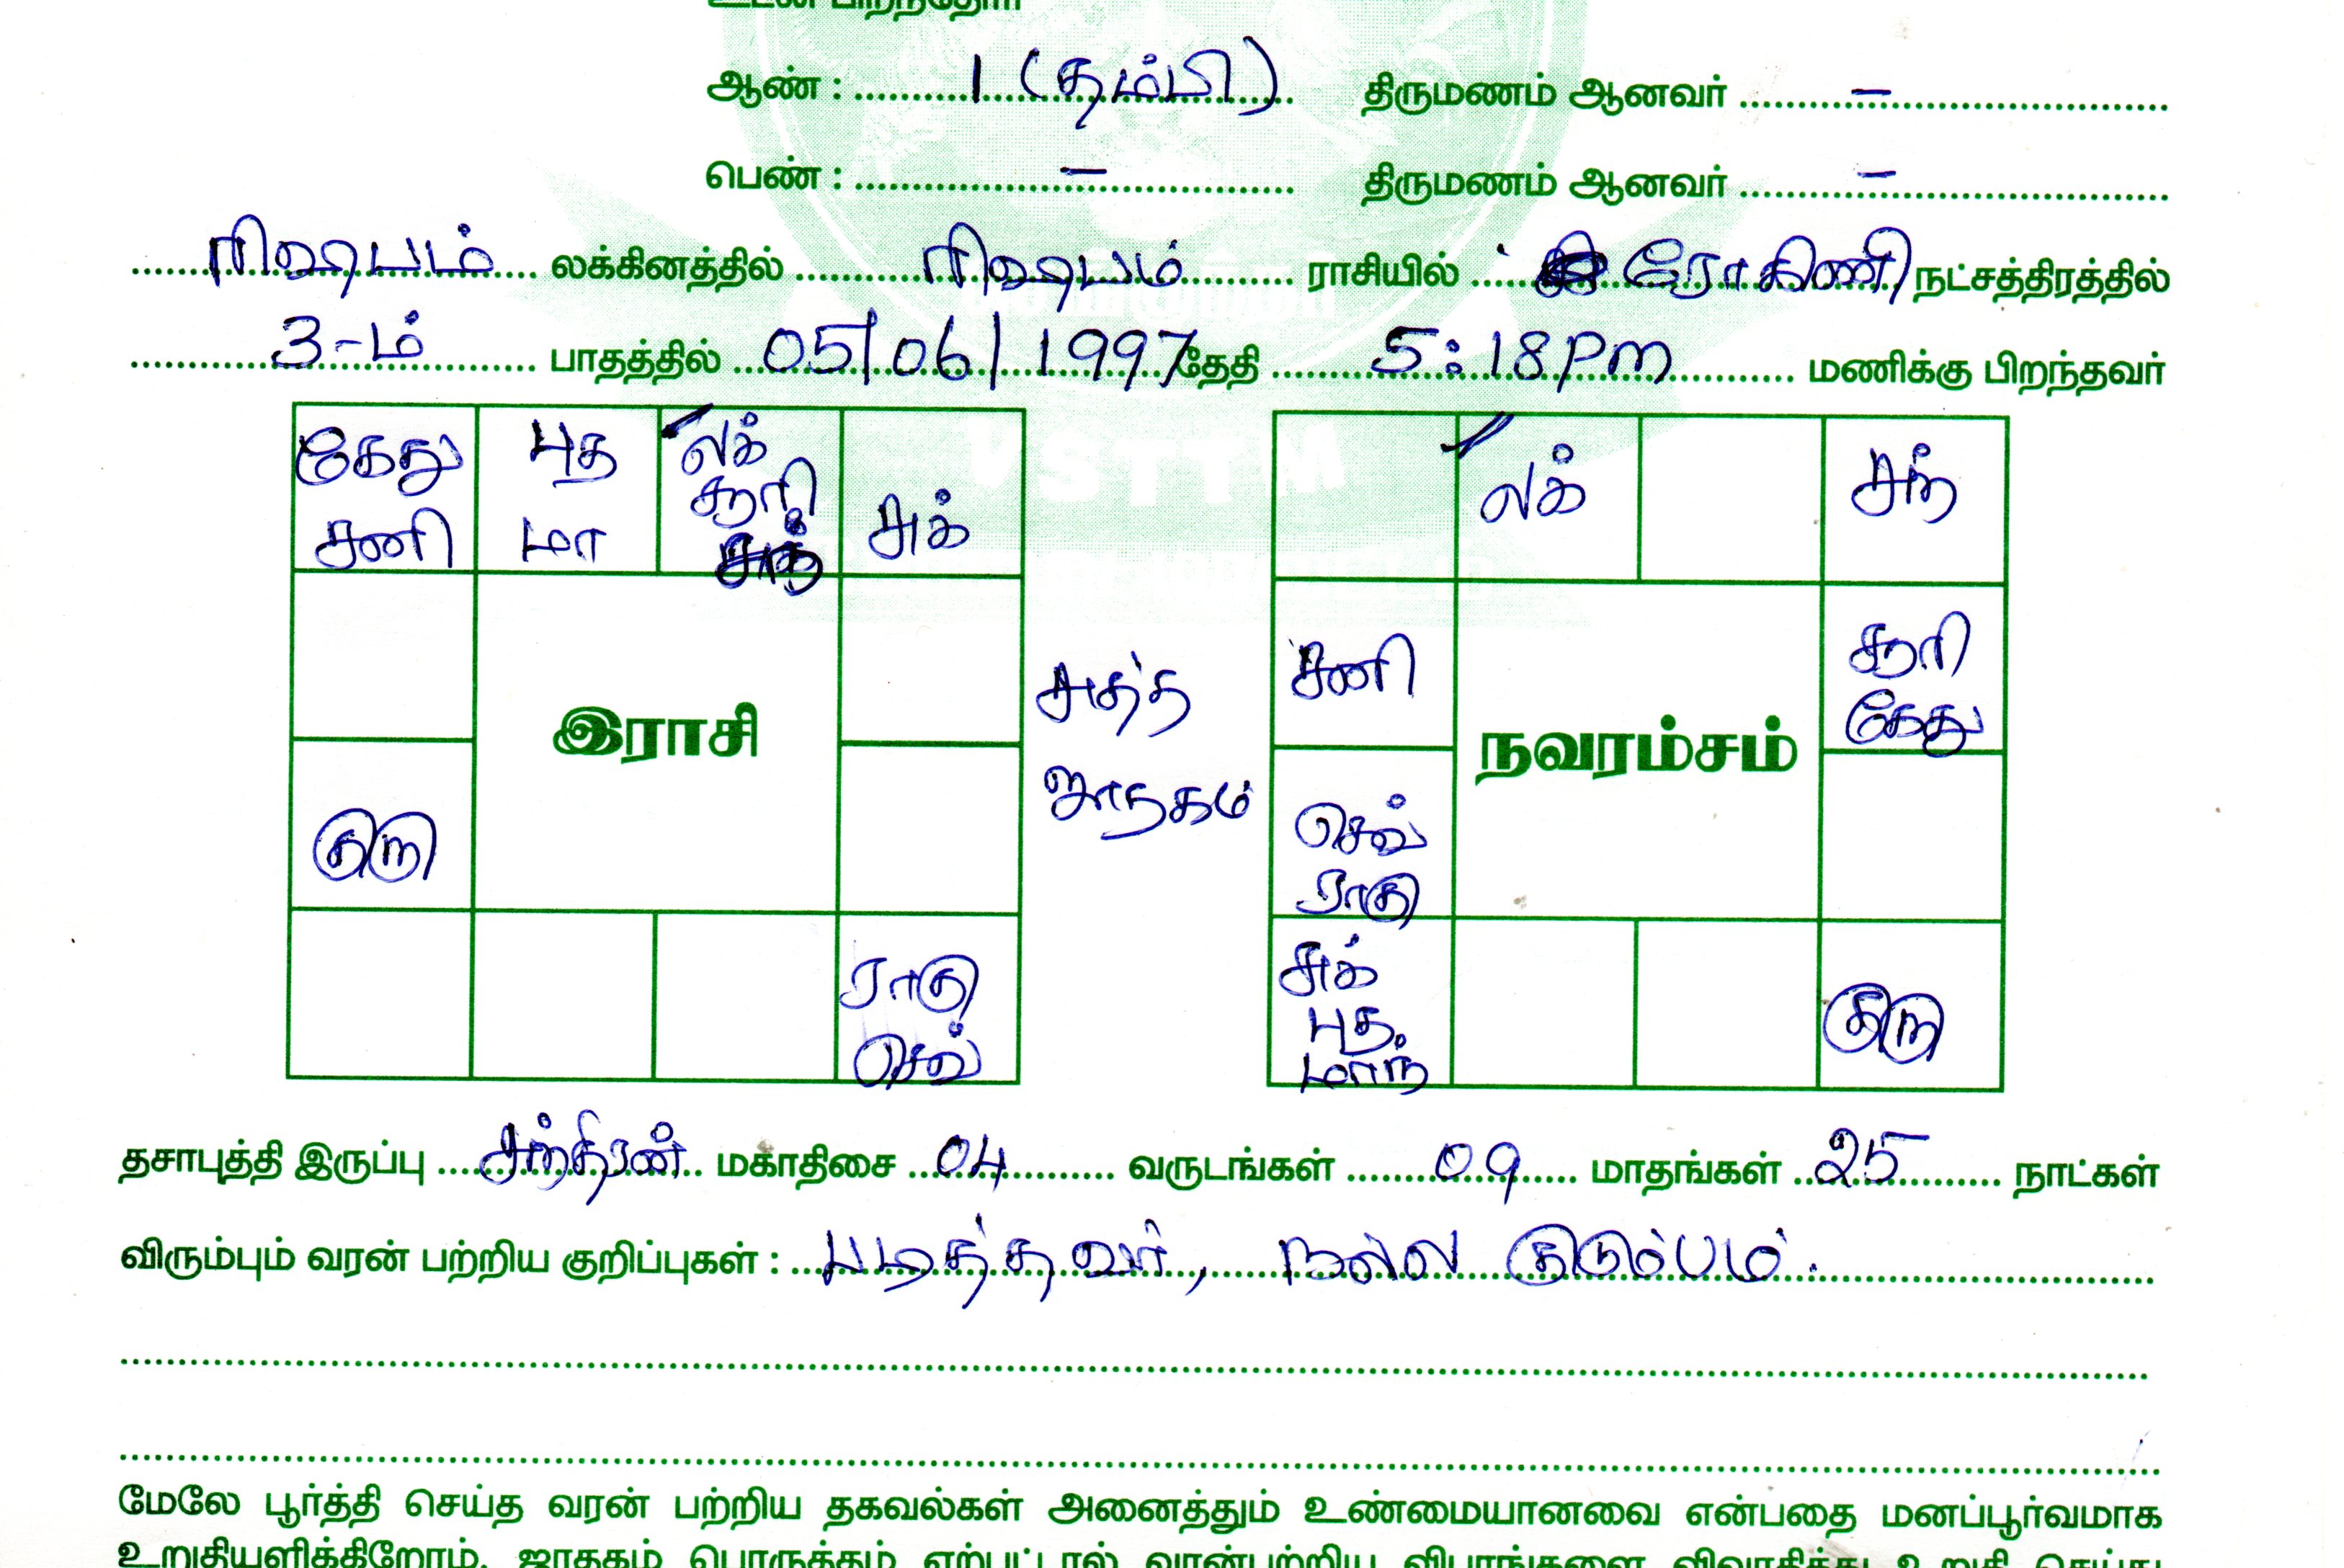 உடன் பிறந்தோர்
ஆண் : 1 (தம்பி) திருமணம் ஆனவர் –
பெண் : – திருமணம் ஆனவர் –
ரிஷபம் லக்கினத்தில் ரிஷபம் ராசியில் ரோகிணி நட்சத்திரத்தில்
3-ம் பாதத்தில் 05/06/1997 தேதி 5:18 Pm மணிக்கு பிறந்தவர்
கேது சனி
புத மா
லக் சூரி சந்
சுக்
குரு
இராசி
ராகு செவ்
சுத்த ஜாதகம்
லக்
சந்
சனி
சூரி கேது
செவ் ராகு
நவரம்சம்
சுக் புத. மாந்
குரு
தசாபுத்தி இருப்பு சந்திரன் மகாதிசை 04 வருடங்கள் 09 மாதங்கள் 25 நாட்கள்
விரும்பும் வரன் பற்றிய குறிப்புகள் : படித்தவர், நல்ல குடும்பம்.
மேலே பூர்த்தி செய்த வரன் பற்றிய தகவல்கள் அனைத்தும் உண்மையானவை என்பதை மனப்பூர்வமாக
உறுதியளிக்கிறோம். ஜாதகம் பொருத்தம் ஏற்பட்டால் வரன்பற்றிய விபரங்களை விவாதித்து உறுதி செய்து
VSTTM